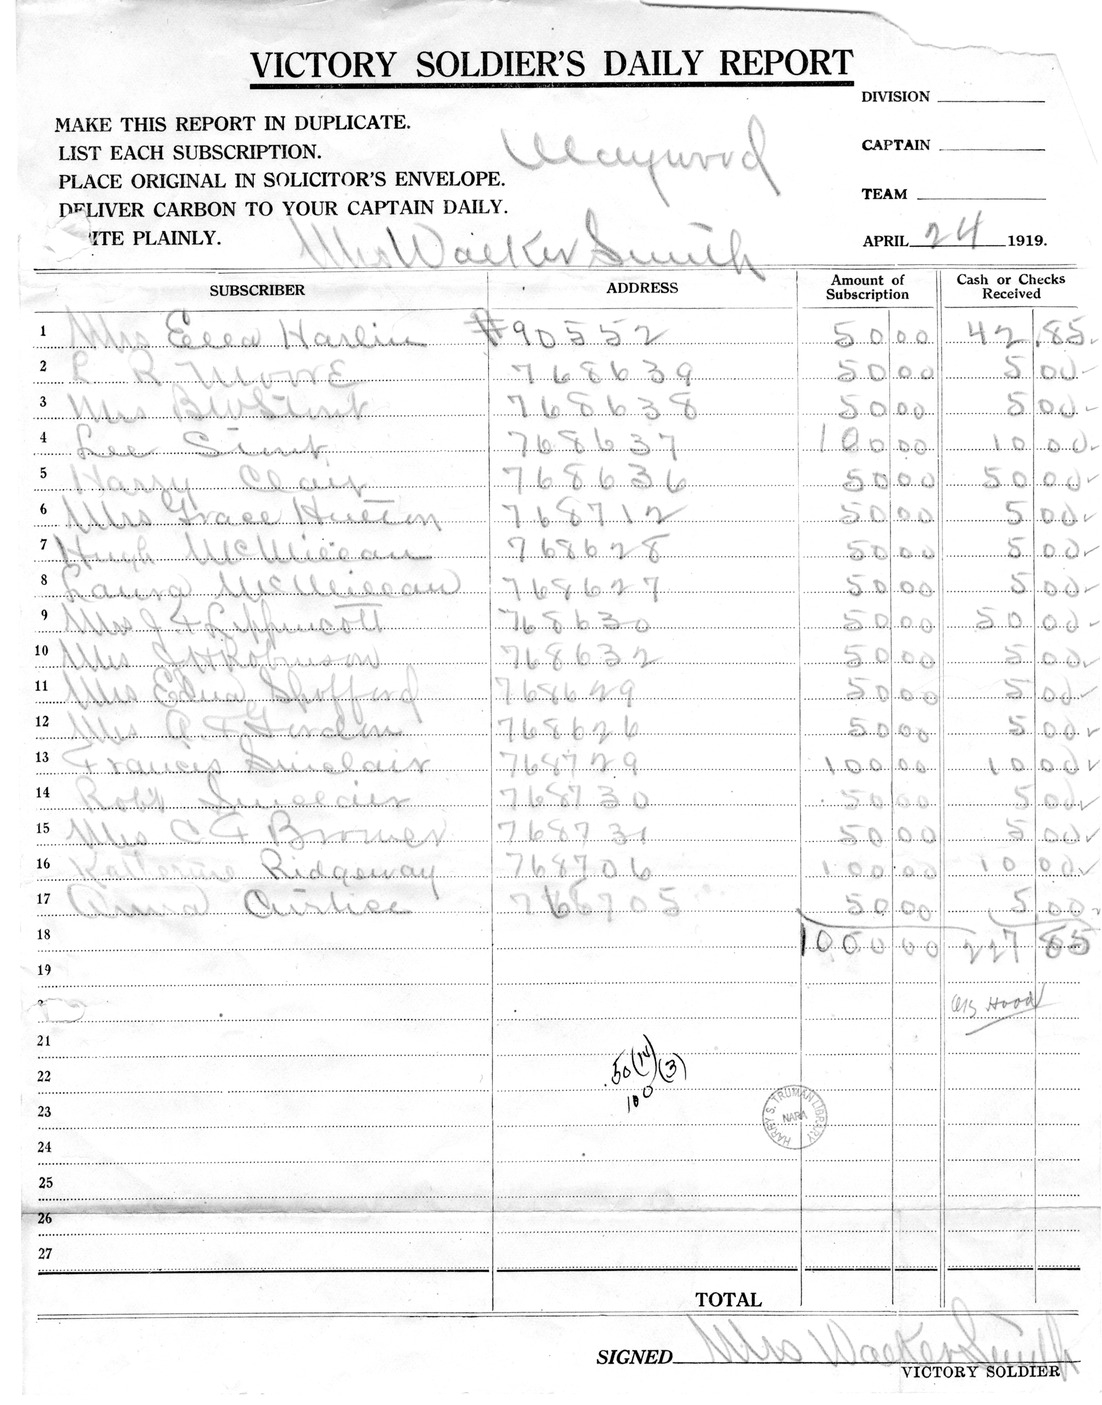 VICTORY SOLDIER'S DAILY REPORT
DIVISION
MAKE THIS REPORT IN DUPLICATE.
LIST EACH SUBSCRIPTION.
CAPTAIN
Maywood
PLACE ORIGINAL IN SOLICITOR'S ENVELOPE.
TEAM
DELIVER CARBON TO YOUR CAPTAIN DAILY.
ITE PLAINLY.
Mrs Walker Smith
APRIL 24 1919.
SUBSCRIBER ADDRESS Amount of Subscription Cash or Checks Received
1 Mrs Ella Harlin #90552 50 00 42.85
2 R 768639 50 00 5 00
3 Mrs 768638 50 00 5 00
4 Lee 768637 100 00 10 00
5 Harry Clair 768636 50 00 50 00
6 Mrs Grace Hutton 768712 50 00 5 00
7 Hugh McMillan 768628 50 00 5 00
8 Laura McMillan 768627 50 00 5 00
9 Mrs J F Lippincott 768630 50 00 50 00
10 Mrs Robinson 768632 50 00 5 00
11 Mrs Edna Shofford 768629 50 00 5 00
12 Mrs 768626 50 00 5 00
13 Francis Sinclair 768729 100 00 10 00
14 Robt Sinclair 768730 50 00 5 00
15 Mrs C F Bromer 768731 50 00 5 00
16 Katherine Ridgeway 768706 100 00 10 00
17 Anna Curtice 768705 50 00 5 00
18 1000 00 227 85
19
Hood
21
50 (14) (3)
22
100
23
HARRY S. TRUMAN LIBRARY
NARA
24
25
26
27
TOTAL
SIGNED Mrs Walker Smith
VICTORY SOLDIER